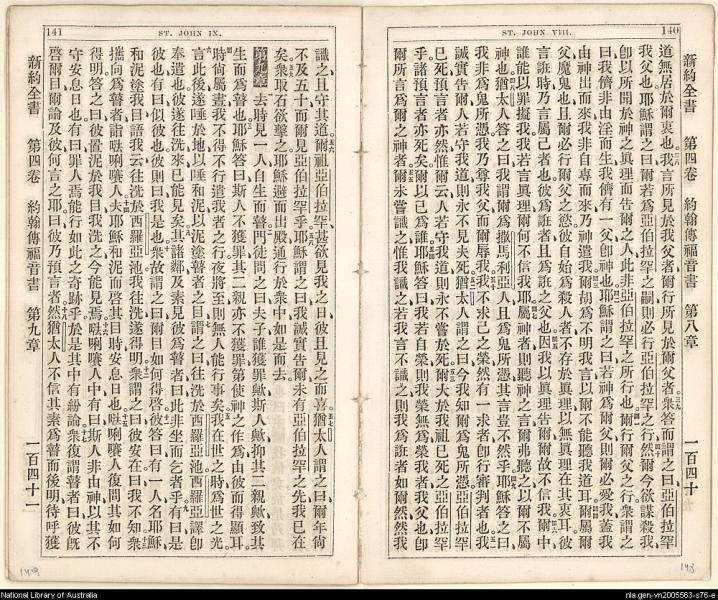 140
ST. JOHN VIII.
新約全書 第四卷 約翰傳福音書 第八章 一百四十
道無居於爾衷也我言所見於我父者爾行所見於爾父者衆答而謂之曰亞伯拉罕
我父也耶穌謂之曰爾若爲亞伯拉罕之嗣則必行亞伯拉罕之行然爾今欲謀殺我
卽以所聞於神之眞理而告爾之人此非亞伯拉罕之所行也爾行爾父之行衆謂之
曰我儕非由淫而生我儕有一父卽神也耶穌謂之曰若神爲爾父則爾必愛我蓋我
由神出而來我非自專而來乃神遣我爾胡爲不明我言以爾不能聽我道耳爾屬爾
父魔鬼也且爾必行爾父之慾彼自始爲殺人者不存於眞理以無眞理在其衷耳彼
言誑時乃言屬己者也彼爲誑者且爲誑之父也因我以眞理告爾爾故不信我爾中
誰能以罪擬我我若言眞理爾何不信我耶屬神者則聽神之言爾弗聽之以爾不屬
神也猶太人答之曰我謂爾爲撒馬利亞人且爲鬼所憑其言豈不然乎耶穌答之曰
我非爲鬼所憑我乃尊我父而爾辱我我不求己之榮然有一求者卽行審判者也我
誠實告爾人若守我道則永不見夫死猶太人謂之曰今我知爾爲鬼所憑亞伯拉罕
已死預言者亦然惟爾云人若守我道則永不嘗於死爾大於我祖已死之亞伯拉罕
乎諸預言者亦死矣爾以己爲誰耶穌答曰我若自榮則我榮無爲榮我者我父也卽
爾所言爲爾之神者爾未嘗識之惟我識之若我言不識之則我爲誑者如爾然然我
143
141
ST. JOHN IX.
識之且守其道爾祖亞伯拉罕甚欲見我之日彼且見之而喜猶太人謂之曰爾年尙
不及五十而爾見亞伯拉罕乎耶穌謂之曰我誠實告爾未有亞伯拉罕之先我已在
矣衆取石欲擊之耶穌避而出殿通行於衆中如是而去
第九章 去時見一人自生而瞽門徒問之曰夫子誰獲罪歟斯人歟抑其二親歟致其
生而爲瞽也耶穌答曰斯人不獲罪其二親亦不獲罪第使神之作爲由彼而得顯耳
時尙屬晝我不得不行遣我者之行夜將至則無人能行事矣我在世之時爲世之光
言此後遂唾於地以唾和泥以泥塗瞽者之目謂之曰往洗於西羅亞池西羅亞譯卽
奉遣也彼遂往洗來已能見矣其諸鄰及素見彼爲瞽者曰此非坐而乞者乎有曰是
彼也有曰似彼也彼則曰我是也衆故謂之曰爾目如何得啓彼答曰有一人名耶穌
和泥塗我目語我云往洗於西羅亞池我往洗遂得明衆謂之曰彼安在曰我不知衆
攜向爲瞽者詣唎人夫耶穌和泥而啓其目時安息日也唎人復問其如何
得明答之曰彼置泥於我目我洗之今能見焉唎人中有曰斯人非由神以其不
守安息日也有曰罪人焉能行如此之奇跡乎於是其中有紛論衆復謂瞽者曰彼旣
啓爾目爾論及彼何言之耶曰彼乃預言者然猶太人不信其素爲瞽而後明待呼獲
新約全書 第四卷 約翰傳福音書 第九章 一百四十一
National Library of Australia
nla.gen-vn2005563-s76-e